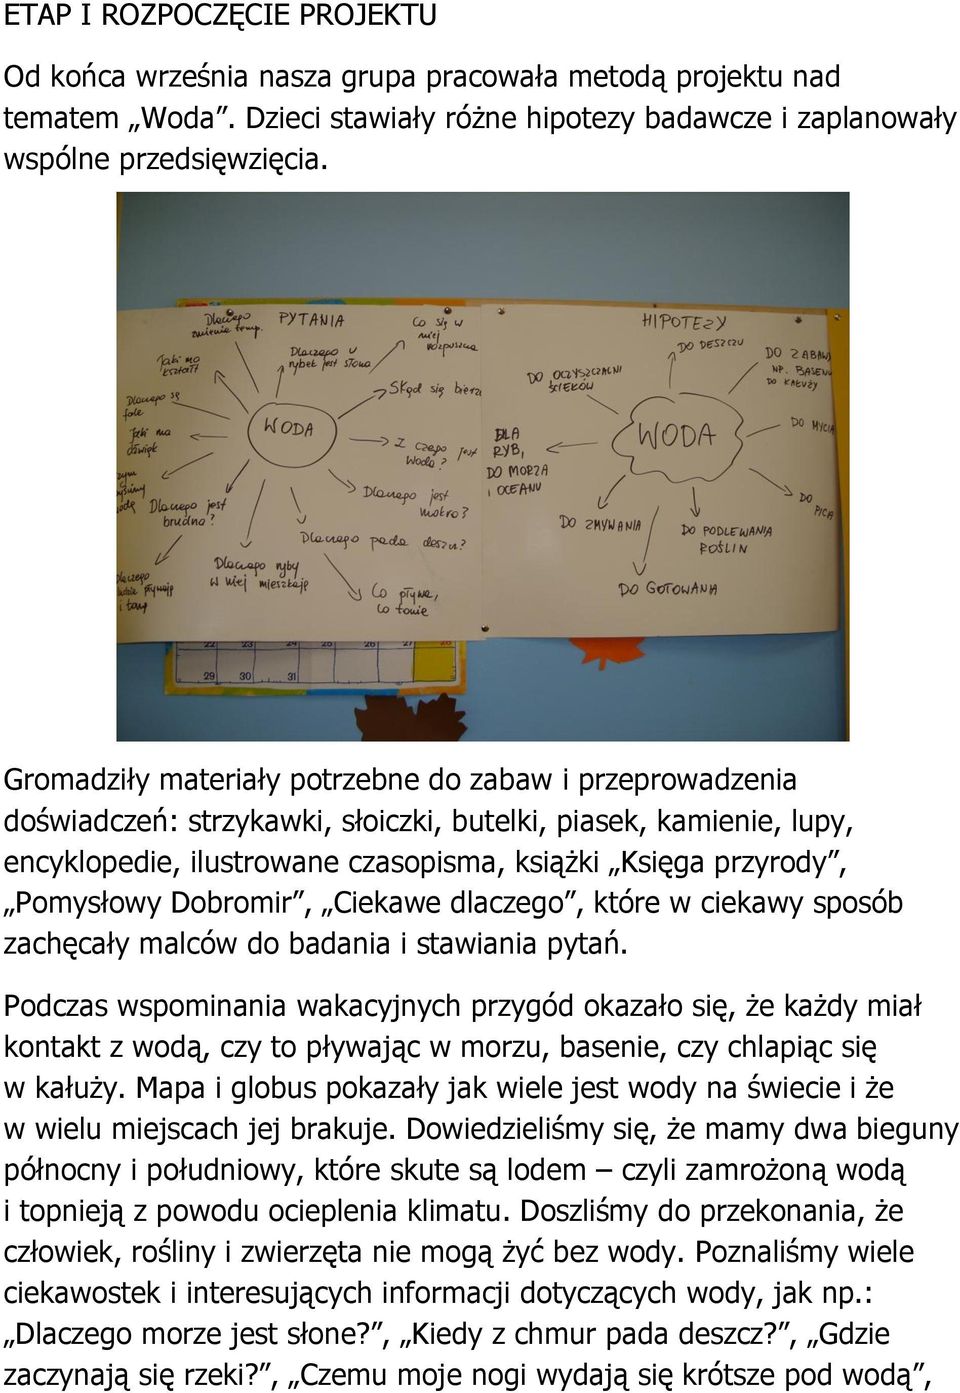 ETAP I ROZPOCZĘCIE PROJEKTU
Od końca września nasza grupa pracowała metodą projektu nad
tematem „Woda”. Dzieci stawiały różne hipotezy badawcze i zaplanowały
wspólne przedsięwzięcia.
Dlaczego
zmienia temp.
PYTANIA
Co się w
niej
rozpuszcza
Jaki ma
kształt
Dlaczego u
rybek jest słona
Skąd się bierze
Dlaczego są
fale
WODA
Jaki ma
dźwięk
Z czego jest
woda?
Dlaczego jest
brudna?
Dlaczego jest
mokra?
Dlaczego pada deszcz?
Dlaczego
pływają
i toną
Dlaczego ryby
w niej mieszkają
Co pływa,
co tonie
HIPOTEZY
DO DESZCZU
DO ZABAWY
NP. BASENU
DO KAŁUŻY
DO OCZYSZCZALNI
ŚCIEKÓW
DLA
RYB,
DO MORZA
I OCEANU
WODA
DO MYCIA
DO
PICIA
DO ZMYWANIA
DO PODLEWANIA
ROŚLIN
DO GOTOWANIA
22 23 24 25 26 27 28
29 30 31
Gromadziły materiały potrzebne do zabaw i przeprowadzenia
doświadczeń: strzykawki, słoiczki, butelki, piasek, kamienie, lupy,
encyklopedie, ilustrowane czasopisma, książki „Księga przyrody”,
„Pomysłowy Dobromir”, „Ciekawe dlaczego”, które w ciekawy sposób
zachęcały malców do badania i stawiania pytań.
Podczas wspominania wakacyjnych przygód okazało się, że każdy miał
kontakt z wodą, czy to pływając w morzu, basenie, czy chlapiąc się
w kałuży. Mapa i globus pokazały jak wiele jest wody na świecie i że
w wielu miejscach jej brakuje. Dowiedzieliśmy się, że mamy dwa bieguny
północny i południowy, które skute są lodem – czyli zamrożoną wodą
i topnieją z powodu ocieplenia klimatu. Doszliśmy do przekonania, że
człowiek, rośliny i zwierzęta nie mogą żyć bez wody. Poznaliśmy wiele
ciekawostek i interesujących informacji dotyczących wody, jak np.:
„Dlaczego morze jest słone?”, „Kiedy z chmur pada deszcz?”, „Gdzie
zaczynają się rzeki?”, „Czemu moje nogi wydają się krótsze pod wodą”,